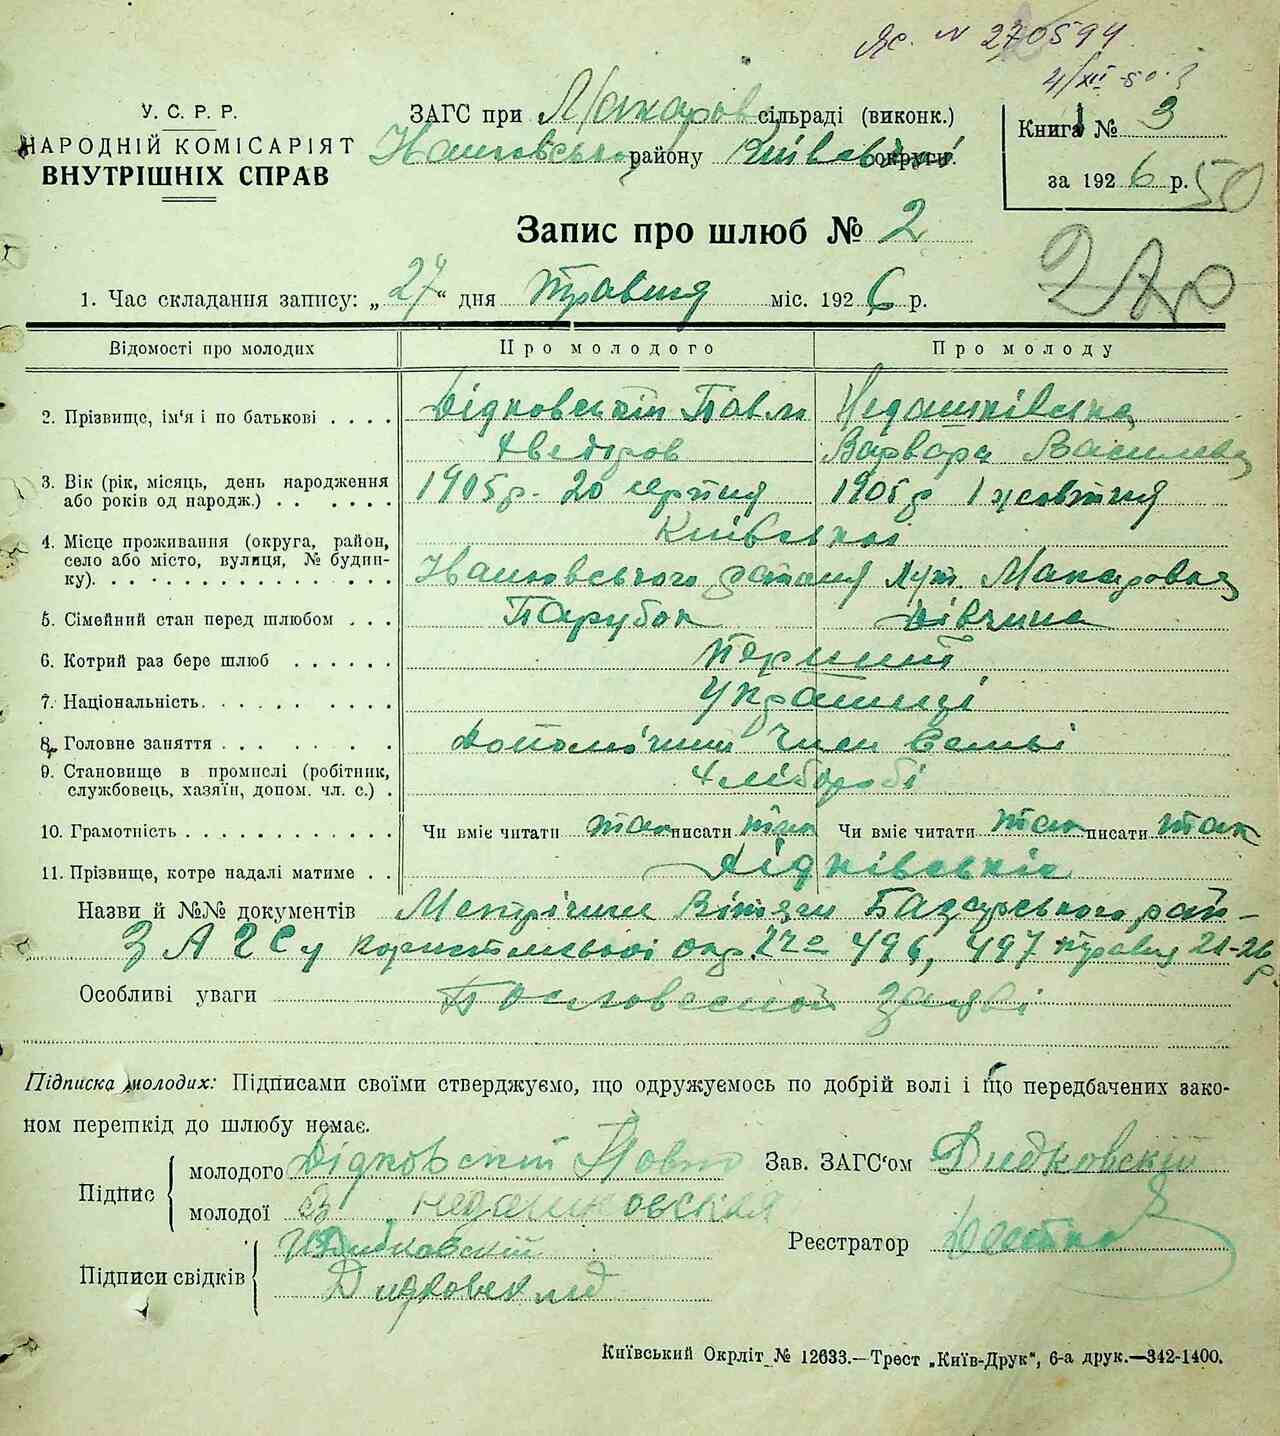 № 270594
4/XII-50 г.
У. С. Р. Р.
НАРОДНІЙ КОМІСАРІЯТ
ВНУТРІШНІХ СПРАВ
ЗАГС при Макаров сільраді (виконк.)
району Київської округи.
Книга № 3
за 1926 р. 50
Запис про шлюб № 2
1. Час складання запису: „27“ дня травня міс. 1926 р.
Відомості про молодих Про молодого Про молоду
2. Прізвище, ім‘я і по батькові . . . . Дідковський Павло Недашківська
Хведоров Варвара Василева
3. Вік (рік, місяць, день народження 1905 р. 20 серпня 1905 р 1 жовтня
або років од народж.) . . . . . .
4. Місце проживання (округа, район, Київської
село або місто, вулиця, № будин- Макаровка
ку). . . . . . . . . . . . . . . .
5. Сімейний стан перед шлюбом . . . Парубок Дівчина
6. Котрий раз бере шлюб . . . . . . Перший
7. Національність. . . . . . . . . . Українці
8. Головне заняття . . . . . . . . Допомічний Член Семьі
9. Становище в промислі (робітник, Хлібороби
службовець, хазяїн, допом. чл. с.) .
10. Грамотність . . . . . . . . . . . . Чи вміє читати так писати так Чи вміє читати так писати так
11. Прізвище, котре надалі матиме . . Дідківські
Назви й №№ документів Метрічни Витяги Базарського рай-
ЗАГСу Коростенської окр. 496, 497 травня 21-26 р.
Особливі уваги Пословесной заяві
Підписка молодих: Підписами своїми стверджуємо, що одружуємось по добрій волі і що передбачених зако-
ном перешкід до шлюбу немає.
Підпис
молодого Дідковский Павло Зав. ЗАГС‘ом Дидковскій
молодої В Недашковская
Підписи свідків
Дидковскій Реєстратор
Київський Окрліт № 12633.—Трест „Київ-Друк“, 6-а друк.—342-1400.